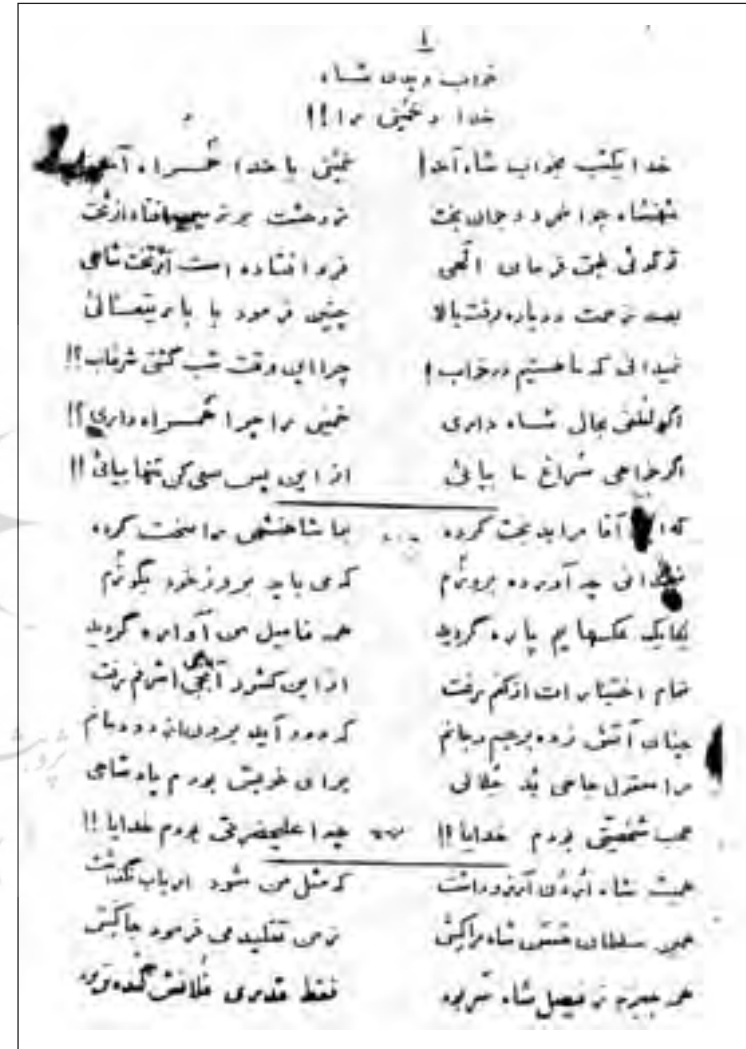 ۱
خواب دیدن شاه
خدا و خمینی را!!
خدا یکشب بخواب شاه آمد! خمینی با خدا همراه آمد
شهنشاه چو خود دید جهان بخت ز وحشت بر زمین افتاد از تخت
تو گوئی طبق فرمان الهی فرو افتاده است از تخت شاهی
بصد زحمت دوباره رفت بالا چنین فرمود با باریتعالی
نمیدانی که ما هستیم در خواب! چرا این وقت شب گشتی شرفیاب؟!!
اگر لطفی بحال شاه داری خمینی را چرا همراه داری؟!!
اگر خواهی سراغ ما بیائی از این پس سعی کن تنها بیائی!!
که آقا مرا بد بخت کرده بما شاهنشهی را سخت کرده
نمیدانی چه آورده بروزم که می باید بروز خود بگوزم
یکایک عکسهایم پاره گردید همه فامیل من آواره گردید
تمام اختیارات از کفم رفت از این کشور آبجی اشرفم رفت
چنان آتش زده بر جسم و جانم که دود آید برون از دودمانم
مرا معقول جاهی بُد جلالی برای خویش بودم پادشاهی
عجب شخصیتی بودم خدایا!! چه اعلیحضرتی بودم خدایا!!
همیشه شاه اُردُن آرزو داشت که مثل من شود ارباب نگذاشت
همین سلطان حسن شاه مراکش ز من تقلید می فرمود جاکش
همه چیزم ز فیصل شاه سر بود فقط قدری فلانش گنده تر بود